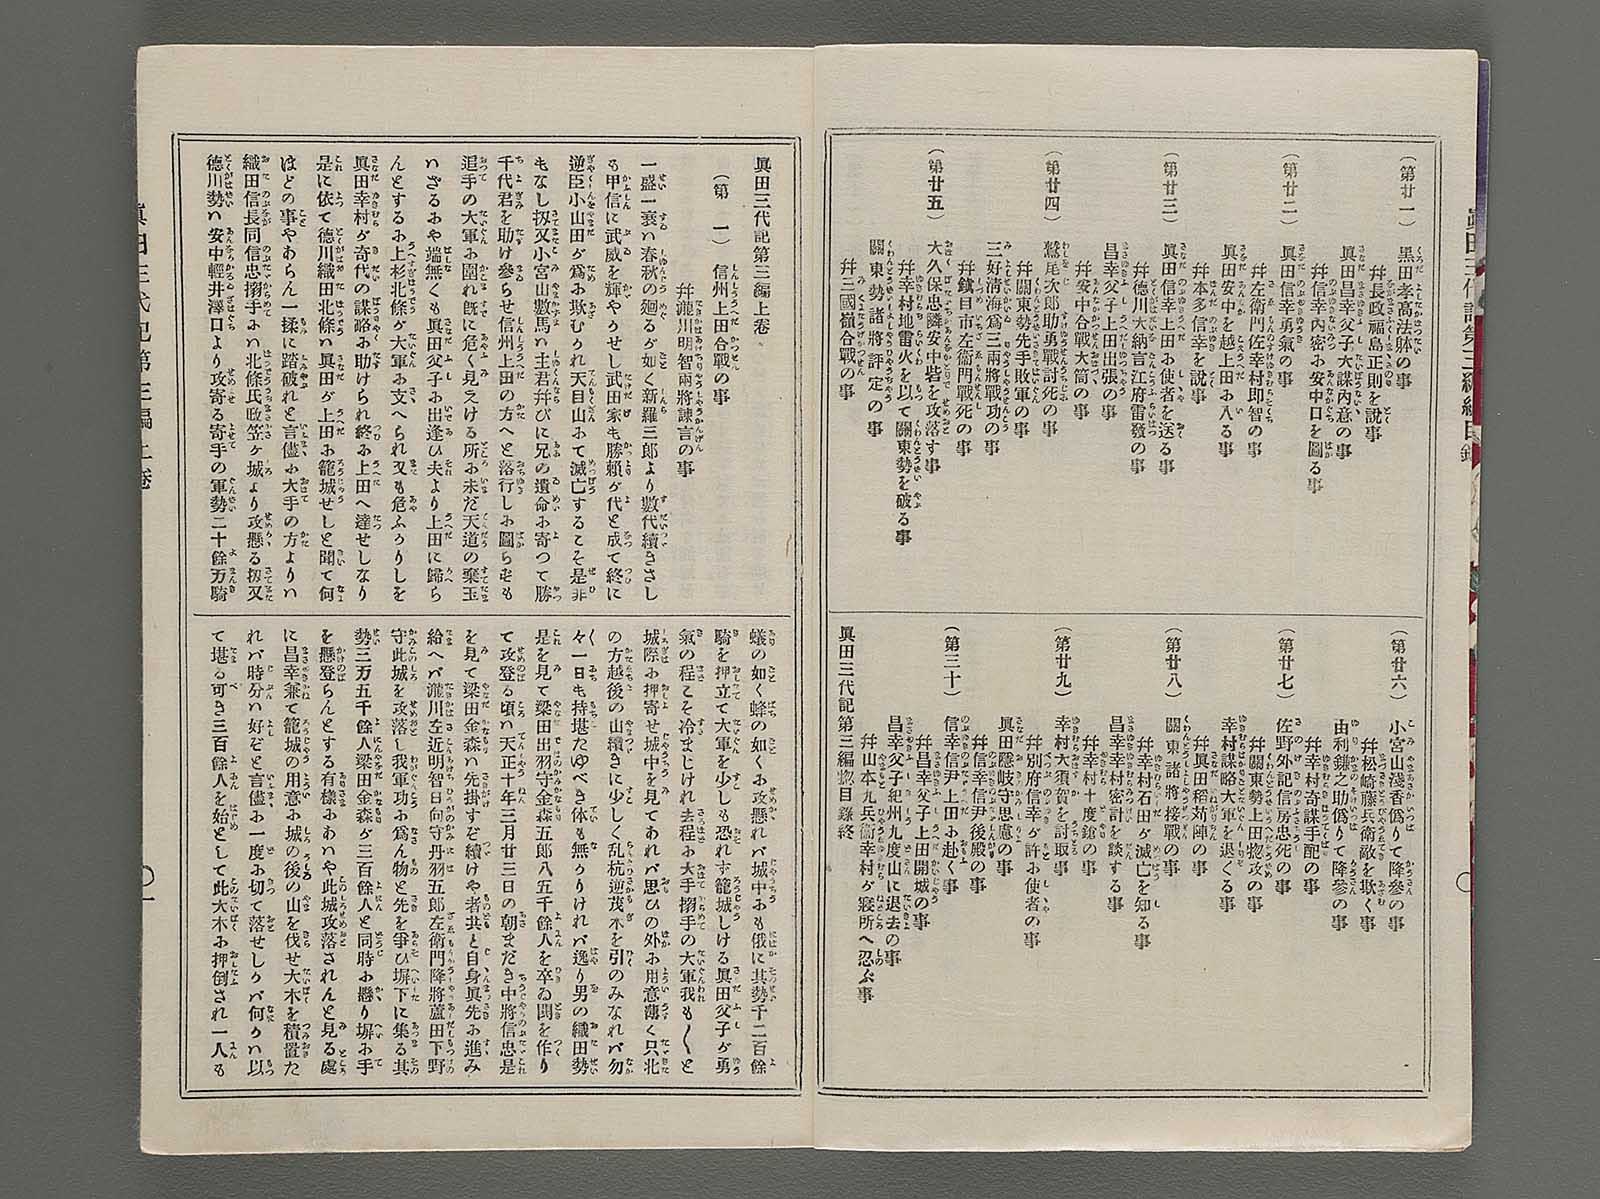 (第廿一)
黒田孝高法躰の事
并長政福島正則を説事
眞田昌幸父子大謀內意の事
并信幸內密お安中口を圖る事
(第廿二)
眞田信幸勇氣の事
并左衛門佐幸村即智の事
眞田安中を越上田お入る事
并本多信幸を説事
(第廿三)
眞田信幸上田お使者を送る事
并德川大納言江府雷發の事
昌幸父子上田出張の事
并安中合戰大筒の事
(第廿四)
鷲尾次郎助勇戰討死の事
并關東勢先手敗軍の事
三好淸海爲三兩將戰功の事
并鐵目市左衛門戰死の事
(第廿五)
大久保忠隣安中砦を攻落す事
并幸村地雷火を以て關東勢を破る事
關東勢諸將評定の事
并三國嶺合戰の事
(第廿六)
小宮山淺香僞りて降參の事
并松崎藤兵衛敵を欺く事
由利鎌之助僞りて降參の事
并幸村奇謀手配の事
(第廿七)
佐野外記信房忠死の事
并關東勢上田惣攻の事
幸村謀略大軍を退くる事
并眞田稻荷陣の事
(第廿八)
關東諸將接戰の事
并幸村石田が滅亡を知る事
昌幸幸村密計を談する事
并幸村十度鎗の事
(第廿九)
幸村大須賀を討取事
并別府信幸が許お使者の事
眞田隱岐守思慮の事
并信幸信尹後殿の事
(第三十)
信幸信尹上田お赴く事
并昌幸父子上田開城の事
昌幸父子紀州九度山に退去の事
并山本九兵衞幸村が寢所へ忍ぶ事
眞田三代記第三編惣目錄終
眞田三代記第三編上卷
(第一) 信州上田合戰の事
并瀧川明智兩將諫言の事
一盛一衰ハ春秋の廻るが如く新羅三郎より數代續きさし
も甲信に武威を輝やかせし武田家も勝賴が代と成て終に
逆臣小山田が爲お欺むかれ天目山おて滅亡するこそ是非
もなし扨又小宮山數馬ハ主君并びに兄の遺命お寄つて勝
千代君を助け參らせ信州上田の方へと落行しお圖らずも
追手の大軍お圍れ旣に危く見えける所お未だ天道の棄玉
ハざるおや端無くも眞田父子お出逢ひ夫より上田に歸ら
んとするお上杉北條が大軍お支へられ又も危ふかりしを
眞田幸村が奇代の謀略お助けられ終お上田へ達せしなり
是に依て德川織田北條ハ眞田が上田お籠城せしと聞て何
ほどの事やあらん一揉に踏破れと言儘お大手の方よりハ
織田信長同信忠搦手おハ北條氏政笠ヶ城より攻懸る扨又
德川勢ハ安中輕井澤口より攻寄る寄手の軍勢二十餘万騎
蟻の如く蜂の如くお攻懸れバ城中おも俄に其勢千二百餘
騎を押立て大軍を少しも恐れす籠城しける眞田父子が勇
氣の程こそ冷まじけれ去程お大手搦手の大軍我も〳〵と
城際お押寄せ城中を見てあれバ思ひの外お用意薄く只北
の方越後の山續きに少しく乱杭逆茂木を引のみなれバ勿
々一日も持堪たゆべき体も無かりけれバ逸り男の織田勢
是を見て梁田出羽守金森五郎八五千餘人を卒ゐ鬨を作り
て攻登る頃ハ天正十年三月廿三日の朝まだき中將信忠是
を見て梁田金森ハ先掛すぞ續けや者共と自身眞先お進み
給へバ瀧川左近明智日向守丹羽五郎左衛門降將蘆田下野
守此城を攻落し我軍功お爲ん物と先を爭ひ塀下に集る其
勢三万五千餘人梁田金森が三百餘人と同時お懸り塀お手
を懸登らんとする有樣おあいや此城攻落されんと見る處
に昌幸兼て籠城の用意お城の後の山を伐せ大木を積置た
れバ時分ハ好ぞと言儘お一度お切て落せしかバ何かハ以
て堪る可き三百餘人を始として此大木お押倒され一人も